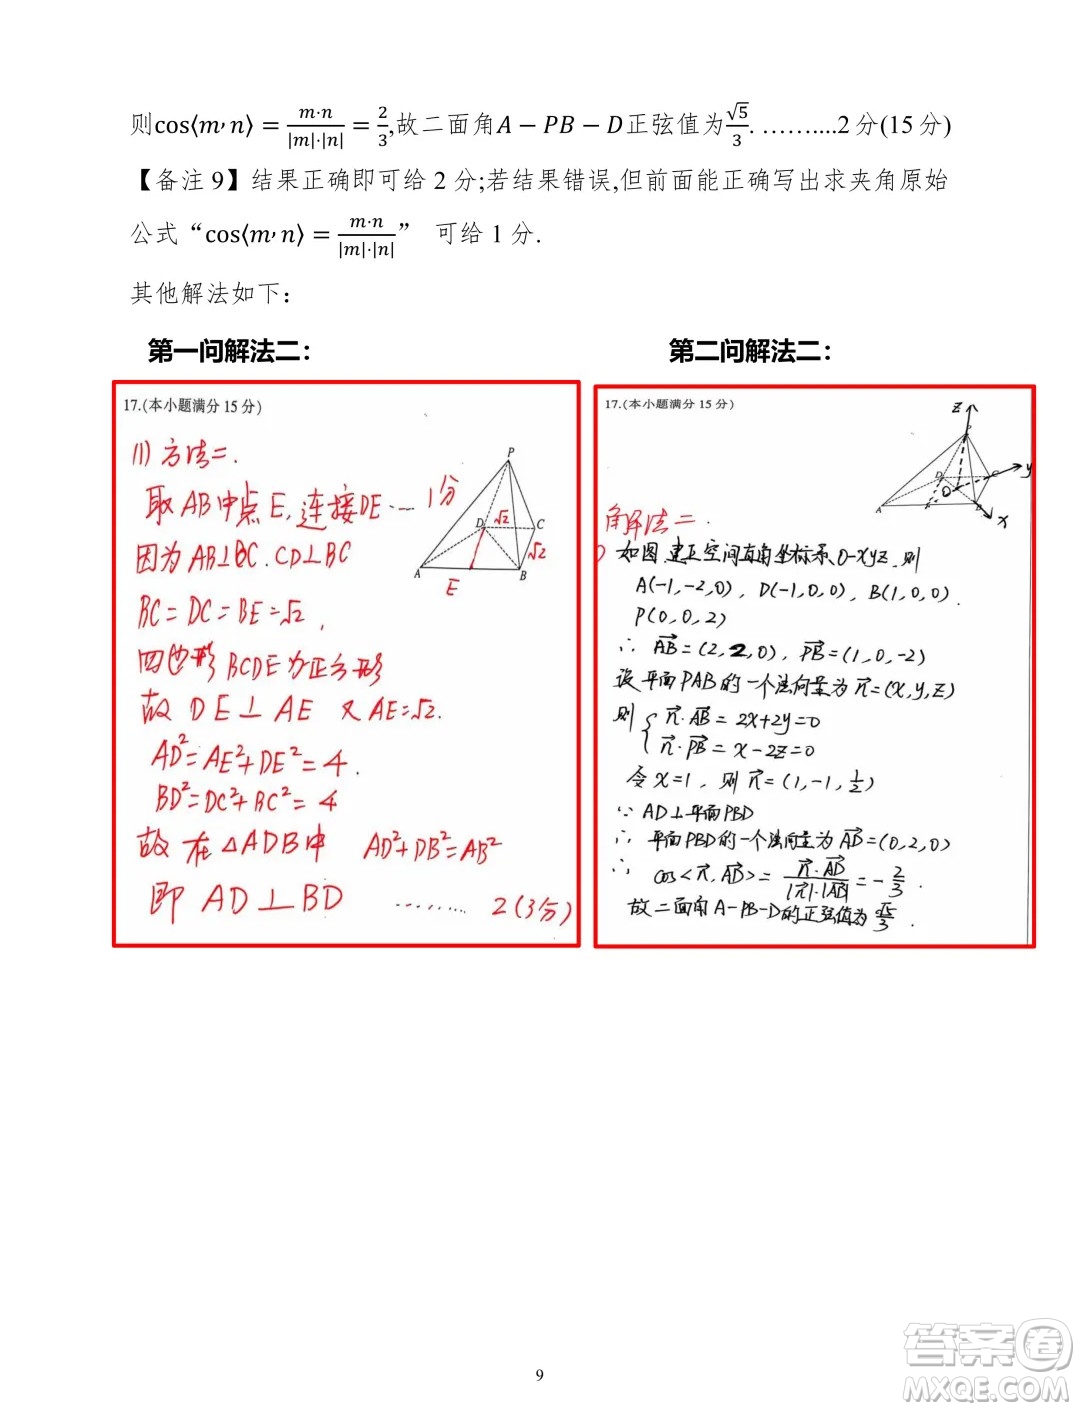 则cos⟨m,n⟩=m·n/|m|·|n|=2/3,故二面角A−PB−D正弦值为√5/3. ………....2分(15分)
【备注9】结果正确即可给2分;若结果错误,但前面能正确写出求夹角原始
公式“cos⟨m,n⟩=m·n/|m|·|n|” 可给1分.
其他解法如下:
第一问解法二:
17.(本小题满分15分)
(1) 方法二.
取AB中点E,连接DE ···· 1分
因为AB⊥BC.CD⊥BC
BC=DC=BE=√2,
四边形BCDE为正方形
故 DE⊥AE 又AE=√2.
AD²=AE²+DE²=4.
BD²=DC²+BC²=4
故在△ADB中 AD²+DB²=AB²
即 AD⊥BD ········ 2(3分)
P
D
√2
C
√2
A
E
B
第二问解法二:
17.(本小题满分15分)
Z
P
D
C
y
O
A
B
x
解法二.
如图,建立空间直角坐标系O-xyz,则
A(-1,-2,0), D(-1,0,0), B(1,0,0).
P(0,0,2)
∴ AB=(2,2,0), PB=(1,0,-2)
设平面PAB的一个法向量为n=(x,y,z)
则{n·AB=2x+2y=0
n·PB=x-2z=0
令x=1,则n=(1,-1,1/2)
∵AD⊥平面PBD
∴平面PBD的一个法向量为AD=(0,2,0)
∴ cos<n,AD>=n·AD/|n|·|AD|=-2/3.
故二面角A-PB-D的正弦值为√5/3.
9
答案卷
MXQE.COM